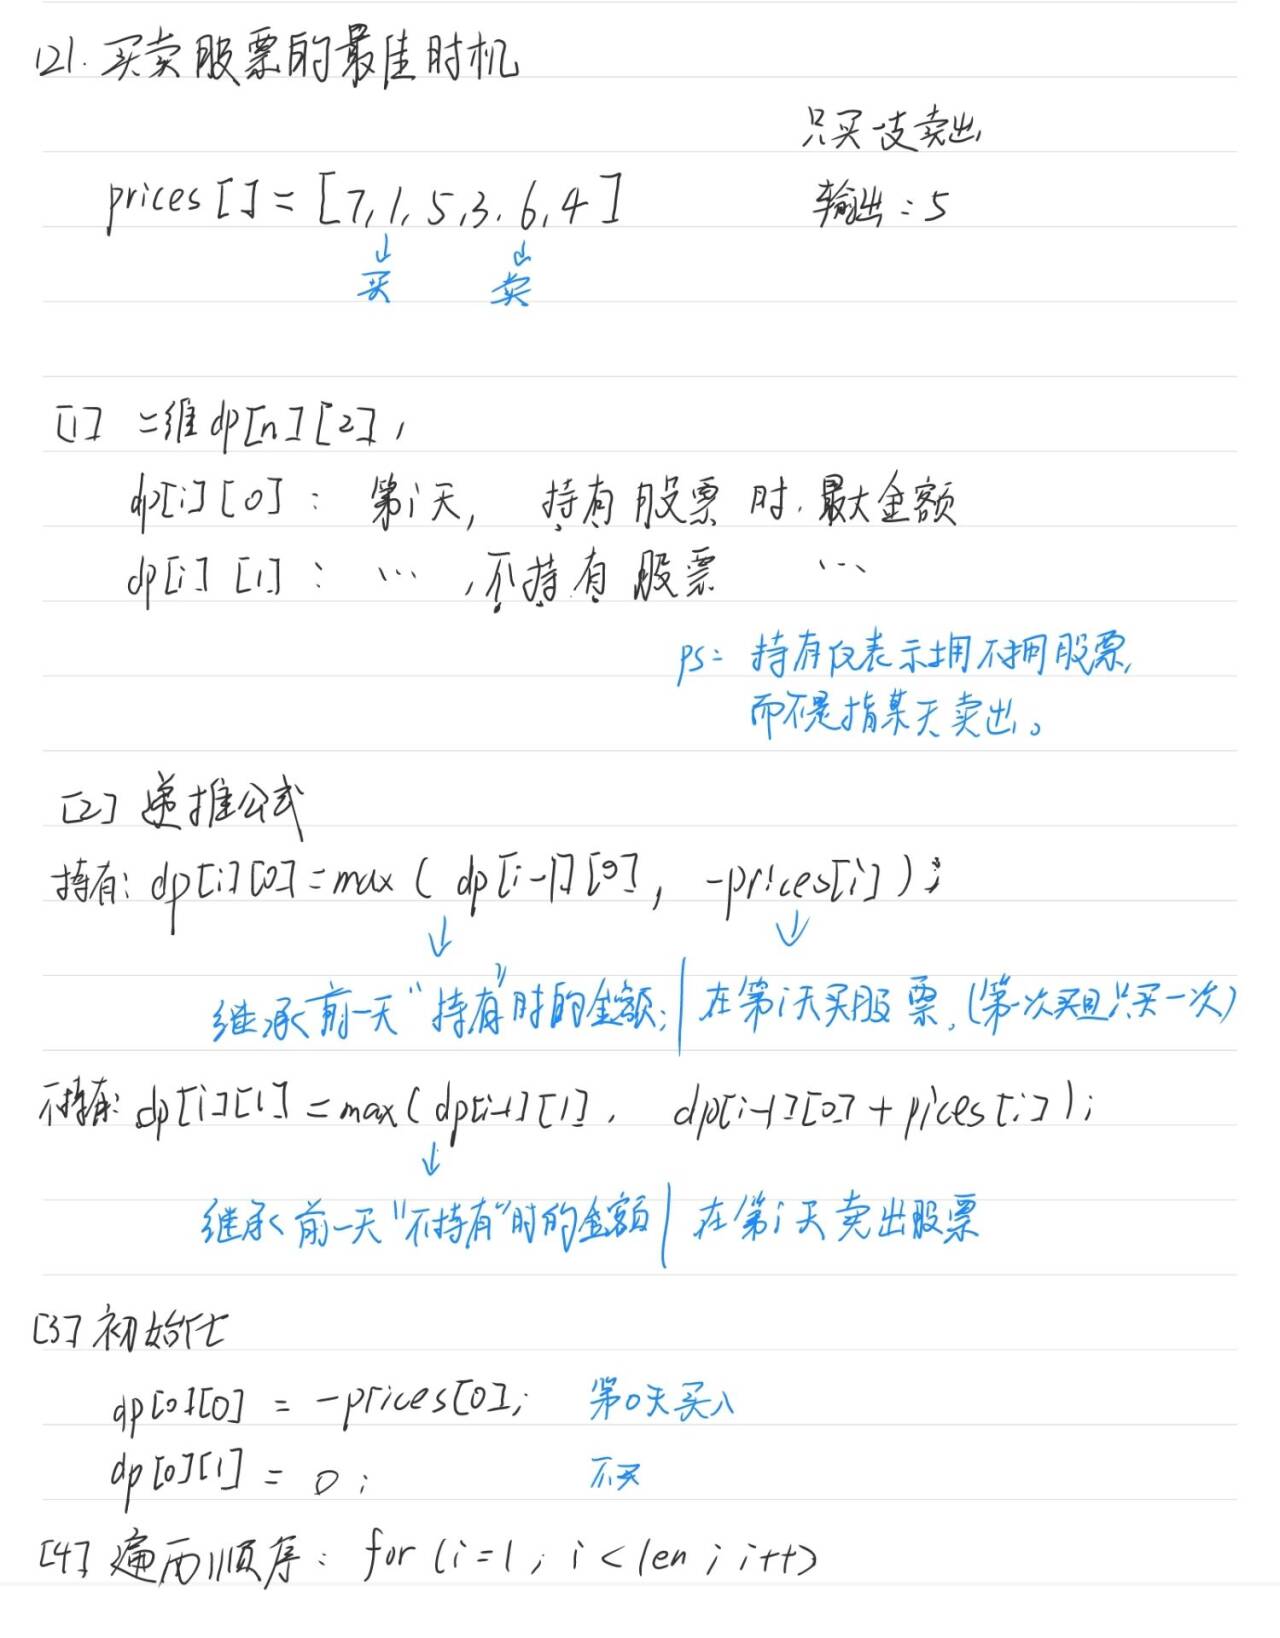 121. 买卖股票的最佳时机
只买一支卖出
prices[] = [7,1,5,3,6,4]
输出：5
↓ ↓
买 卖
[1] 二维dp[n][2],
dp[i][0]： 第i天, 持有股票时.最大金额
dp[i][1]： … ,不持有股票 …
ps: 持有仅表示拥不拥股票,
而不是指某天卖出。
[2] 递推公式
持有: dp[i][0]=max( dp[i-1][0], -prices[i]);
↓ ↓
继承前一天“持有”时的金额; | 在第i天买股票,(第一次买且只买一次)
不持有: dp[i][1]=max(dp[i-1][1], dp[i-1][0]+pices[i]);
↓
继承前一天“不持有”时的金额 | 在第i天卖出股票
[3] 初始化
dp[0][0] = -prices[0]; 第0天买入
dp[0][1] = 0; 不买
[4] 遍历顺序: for (i=1; i<len; i++)